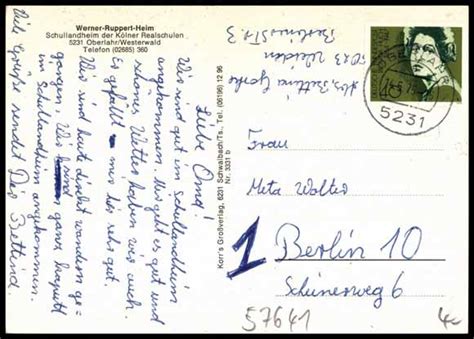 Werner-Ruppert-Heim
Schullandheim der Kölner Realschulen
5231 Oberlahr/Westerwald
Telefon (02685) 360
Liebe Oma!
Wir sind gut in Schullandheim
angekommen. Mir geht es gut und
schönes Wetter haben wir auch.
Es gefällt mir hir sehr gut.
Wir sind heute direkt wandern ge=
gangen. Wir sind ganz kaputt
im Schullandheim angekommen.
Viele Grüße sendet Dir Bettina
Korr's Großverlag, 6231 Schwalbach/Ts., Tel. (06196) 12 96
Nr. 3331 b
Abs. Bettina
5023 Weiden
Berlinerstr 3
5231
Frau
Meta Walter
1 Berlin 10
Scheinerweg 6
57641
4,-